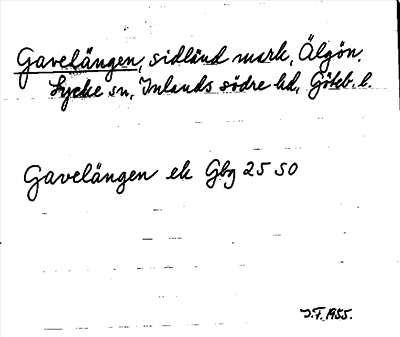 Gavelängen, sidländ mark, Älgön.
Lycke sn, Inlands södre hd, Göteb. l.
Gavelängen ek Gbg 25 SO
J.F. 1955.